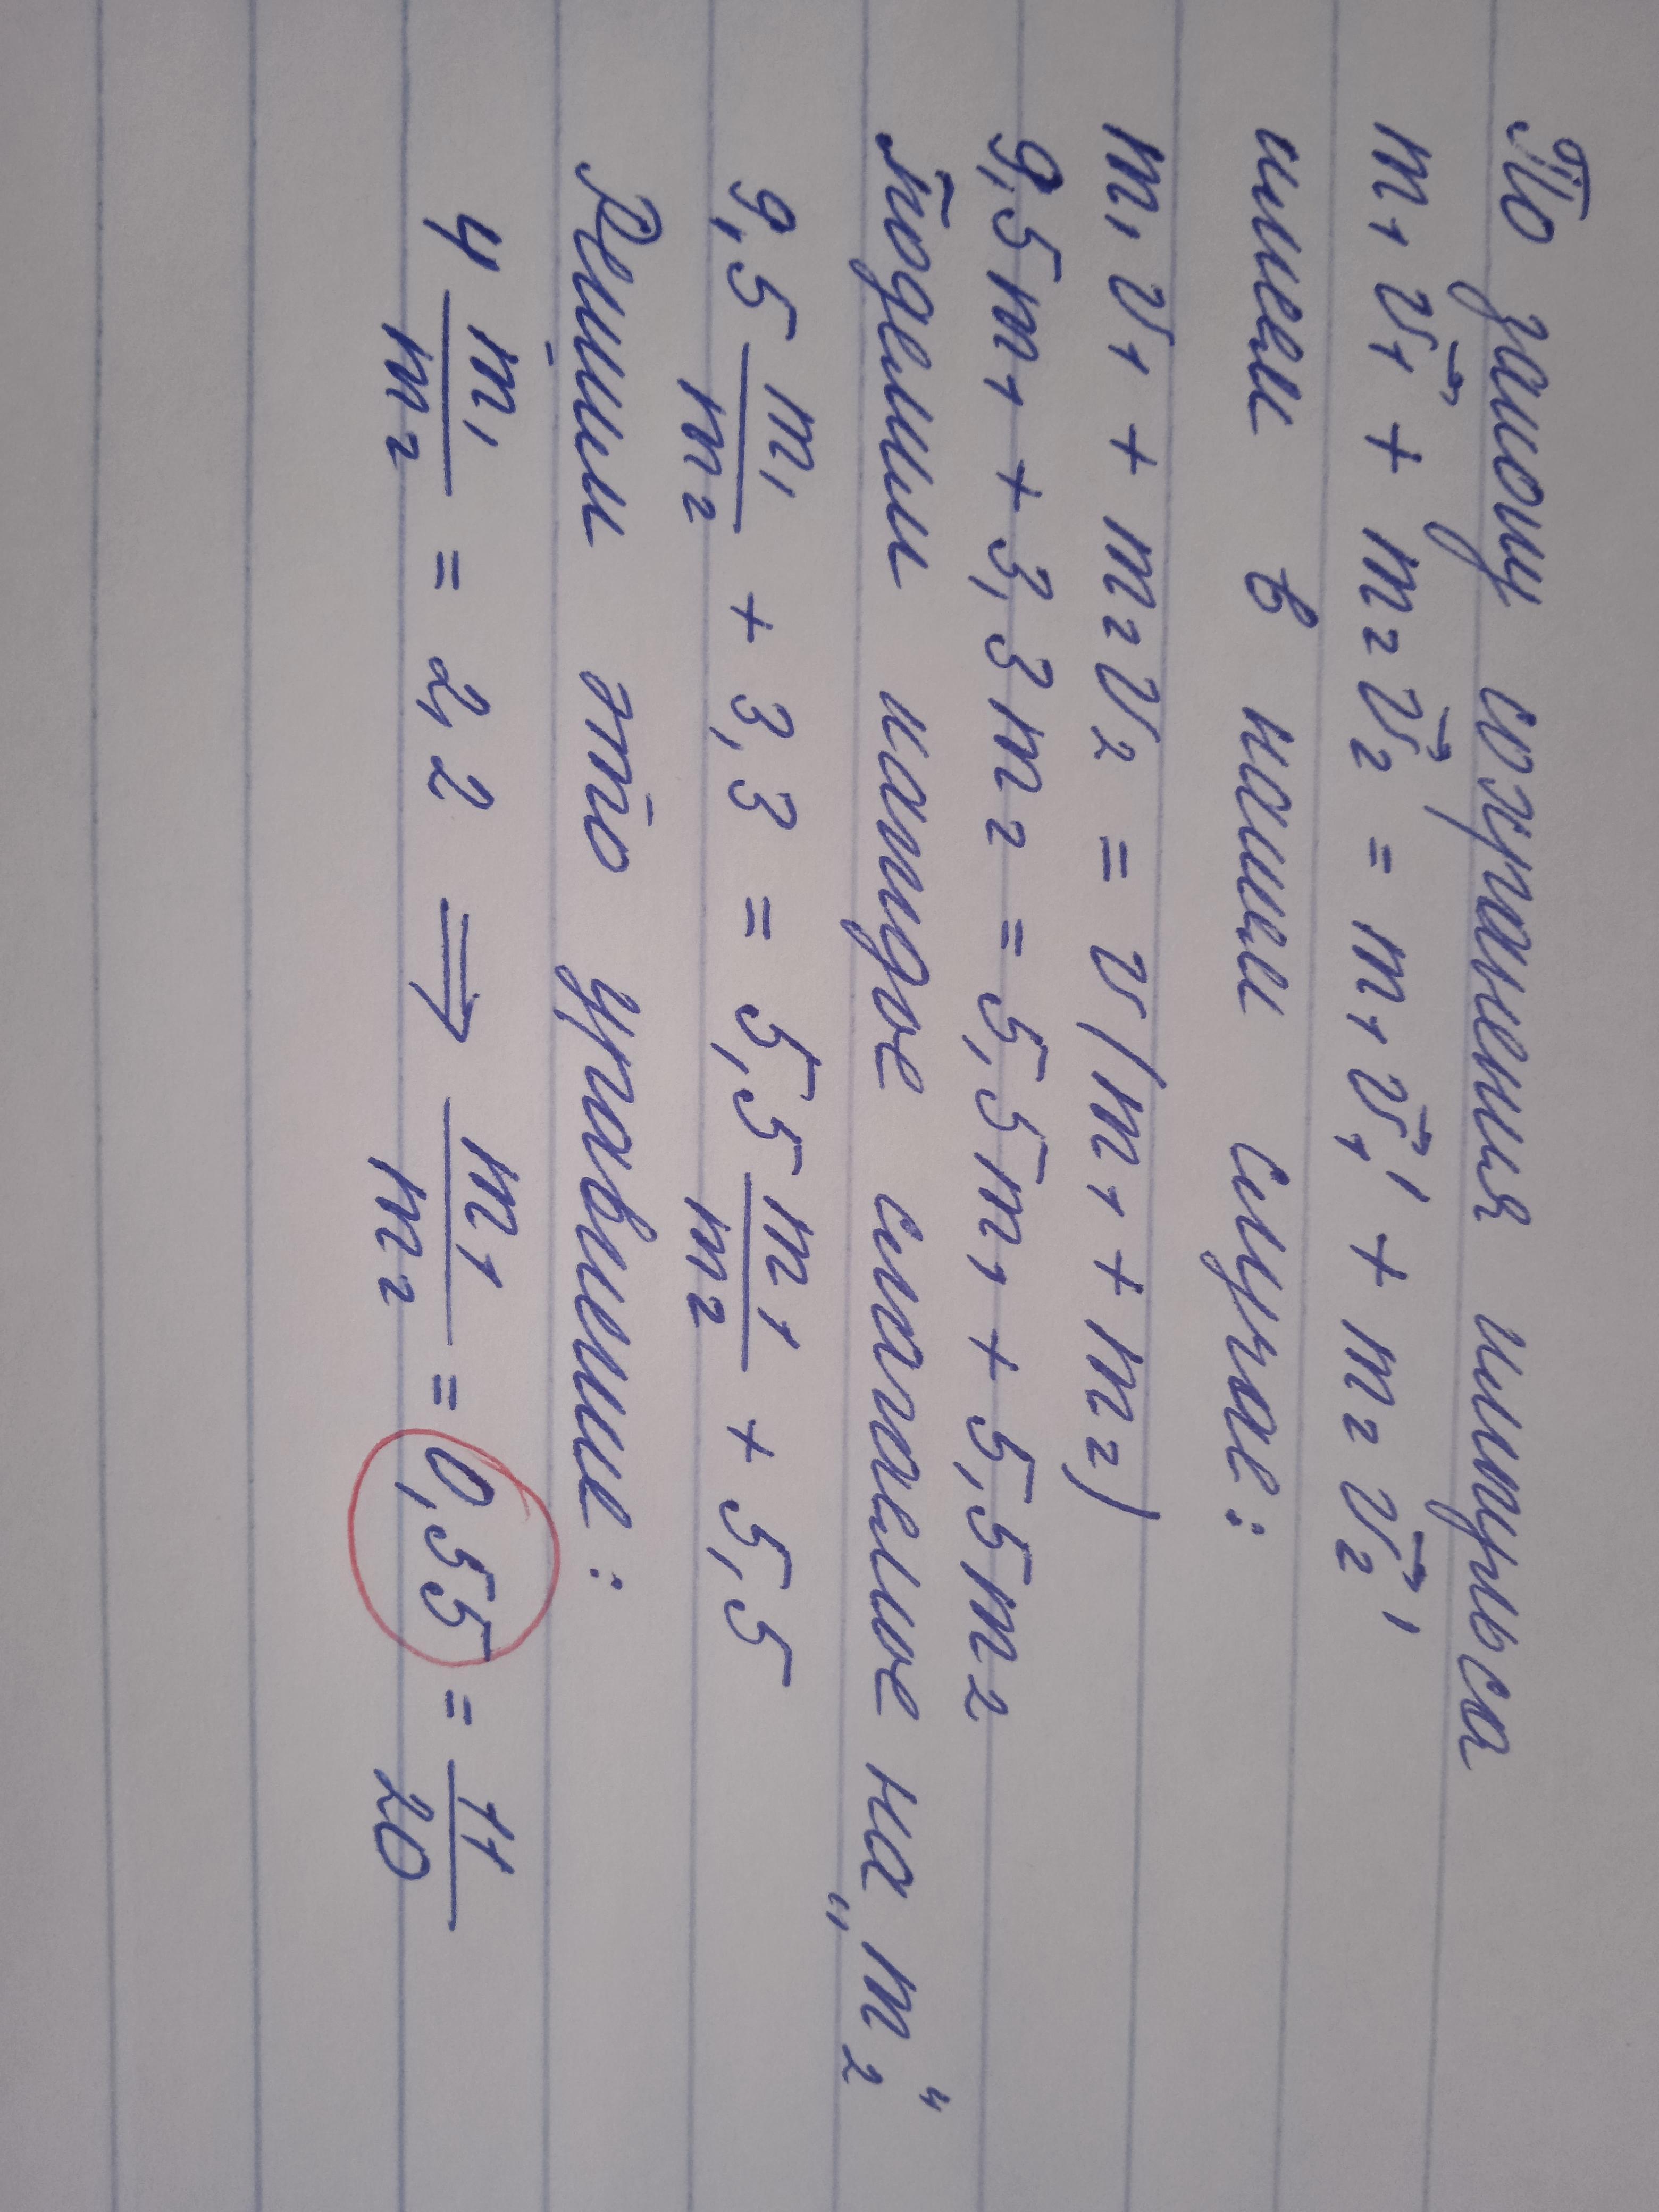 По закону сохранения импульса
m₁v⃗₁ + m₂v⃗₂ = m₁v⃗₁' + m₂v⃗₂'
имеем в нашем случае:
m₁v₁ + m₂v₂ = v(m₁ + m₂)
9,5m₁ + 3,3m₂ = 5,5m₁ + 5,5m₂
Поделим каждое слагаемое на „m₂“
9,5 m₁/m₂ + 3,3 = 5,5 m₁/m₂ + 5,5
Решим это уравнение:
4 m₁/m₂ = 2,2 ⟹ m₁/m₂ = 0,55 = 11/20